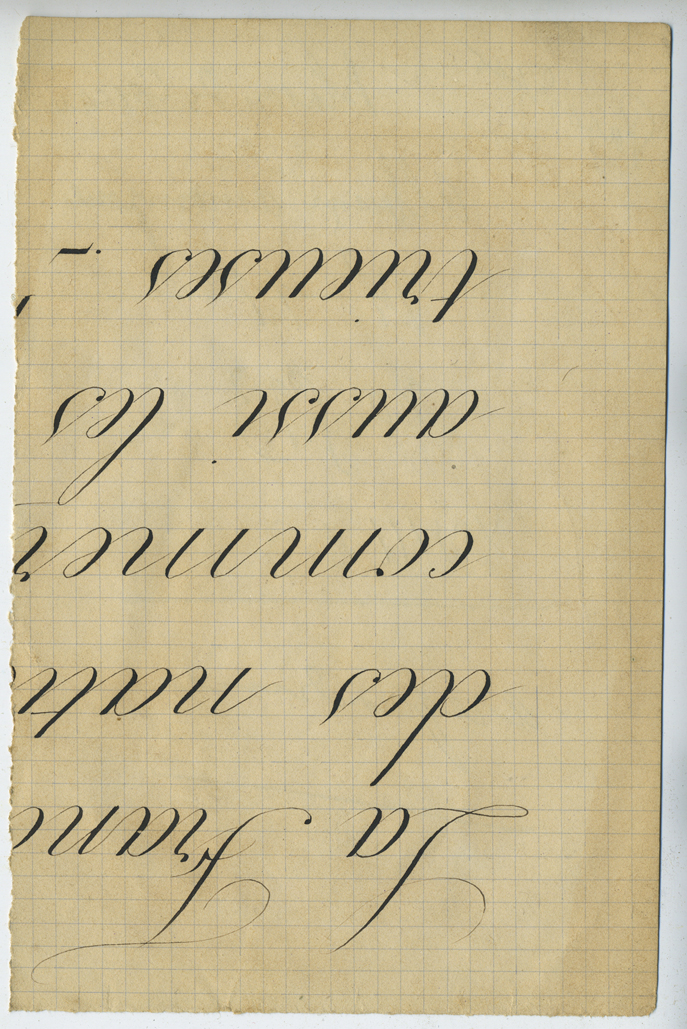 La Franc
des nati
commer
aussi les
trieuses -.